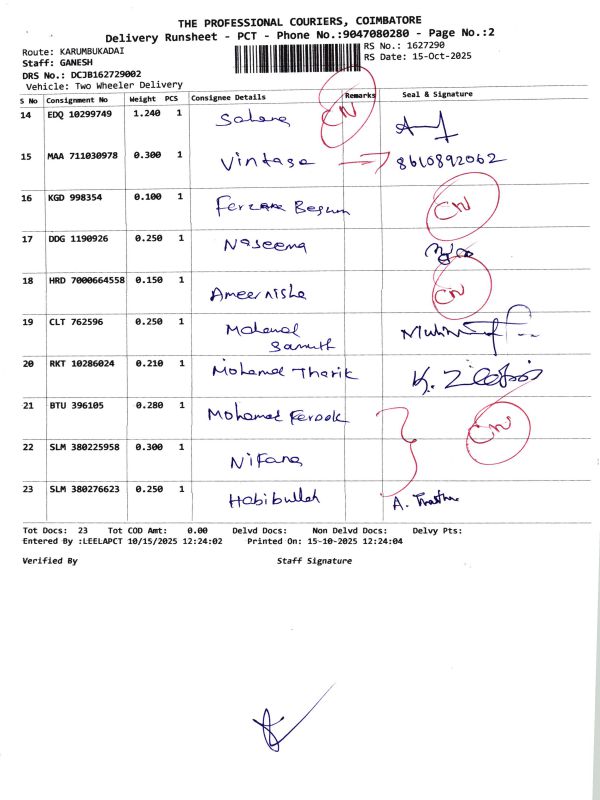 THE PROFESSIONAL COURIERS, COIMBATORE
Delivery Runsheet - PCT - Phone No.:9047080280 - Page No.:2
Route: KARUMBUKADAI
RS No.: 1627290
Staff: GANESH
RS Date: 15-Oct-2025
DRS No.: DCJB162729002
Vehicle: Two Wheeler Delivery
S No Consignment No Weight PCS Consignee Details Remarks Seal & Signature
14 EDQ 10299749 1.240 1 Sahana CN
15 MAA 711030978 0.300 1 Vintase 8610892062
16 KGD 998354 0.100 1 Ferzana Begum CN
17 DDG 1190926 0.250 1 Naseema
18 HRD 7000664558 0.150 1 Ameernisha CN
19 CLT 762596 0.250 1 Mohamed
20 RKT 10286024 0.210 1 Mohamed Tharik
21 BTU 396105 0.280 1 Mohamed Farook CN
22 SLM 380225958 0.300 1 Nifana
23 SLM 380276623 0.250 1 Habibullah
Tot Docs: 23 Tot COD Amt: 0.00 Delvd Docs: Non Delvd Docs: Delvy Pts:
Entered By :LEELAPCT 10/15/2025 12:24:02 Printed On: 15-10-2025 12:24:04
Verified By Staff Signature